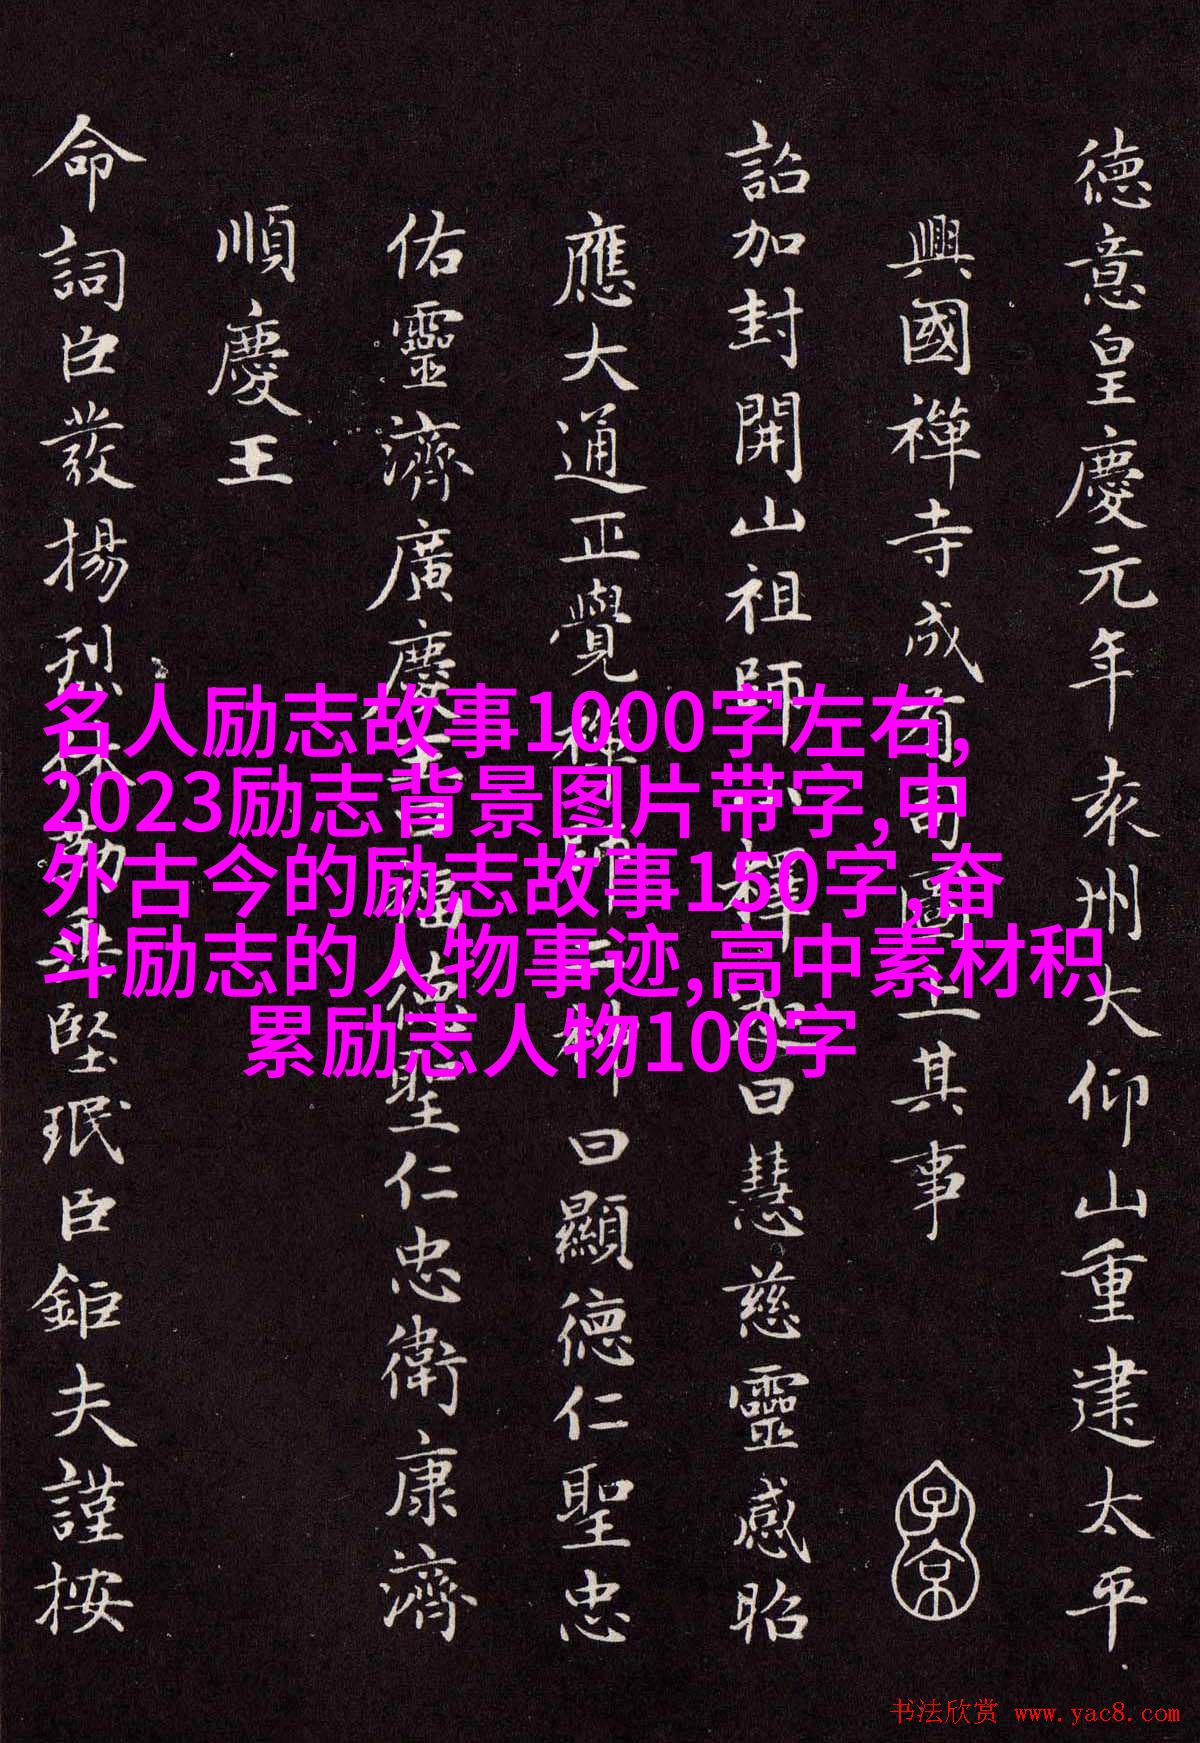 德意皇慶元年袁州大仰山重建太平
興國禪寺成有司圖上其事
子京
詔加封開山祖師小釋迦曰慧慈靈感昭
應大通正覺禪師二神曰顯德仁聖忠
佑靈濟廣慶王曰福德聖仁忠衛康濟
順慶王
命詞臣發揚勒垂堅珉臣鉅夫謹按
名人励志故事1000字左右,
2023励志背景图片带字,中
外古今的励志故事150字,奋
斗励志的人物事迹,高中素材积
累励志人物100字
书法欣赏 www.yac8.com